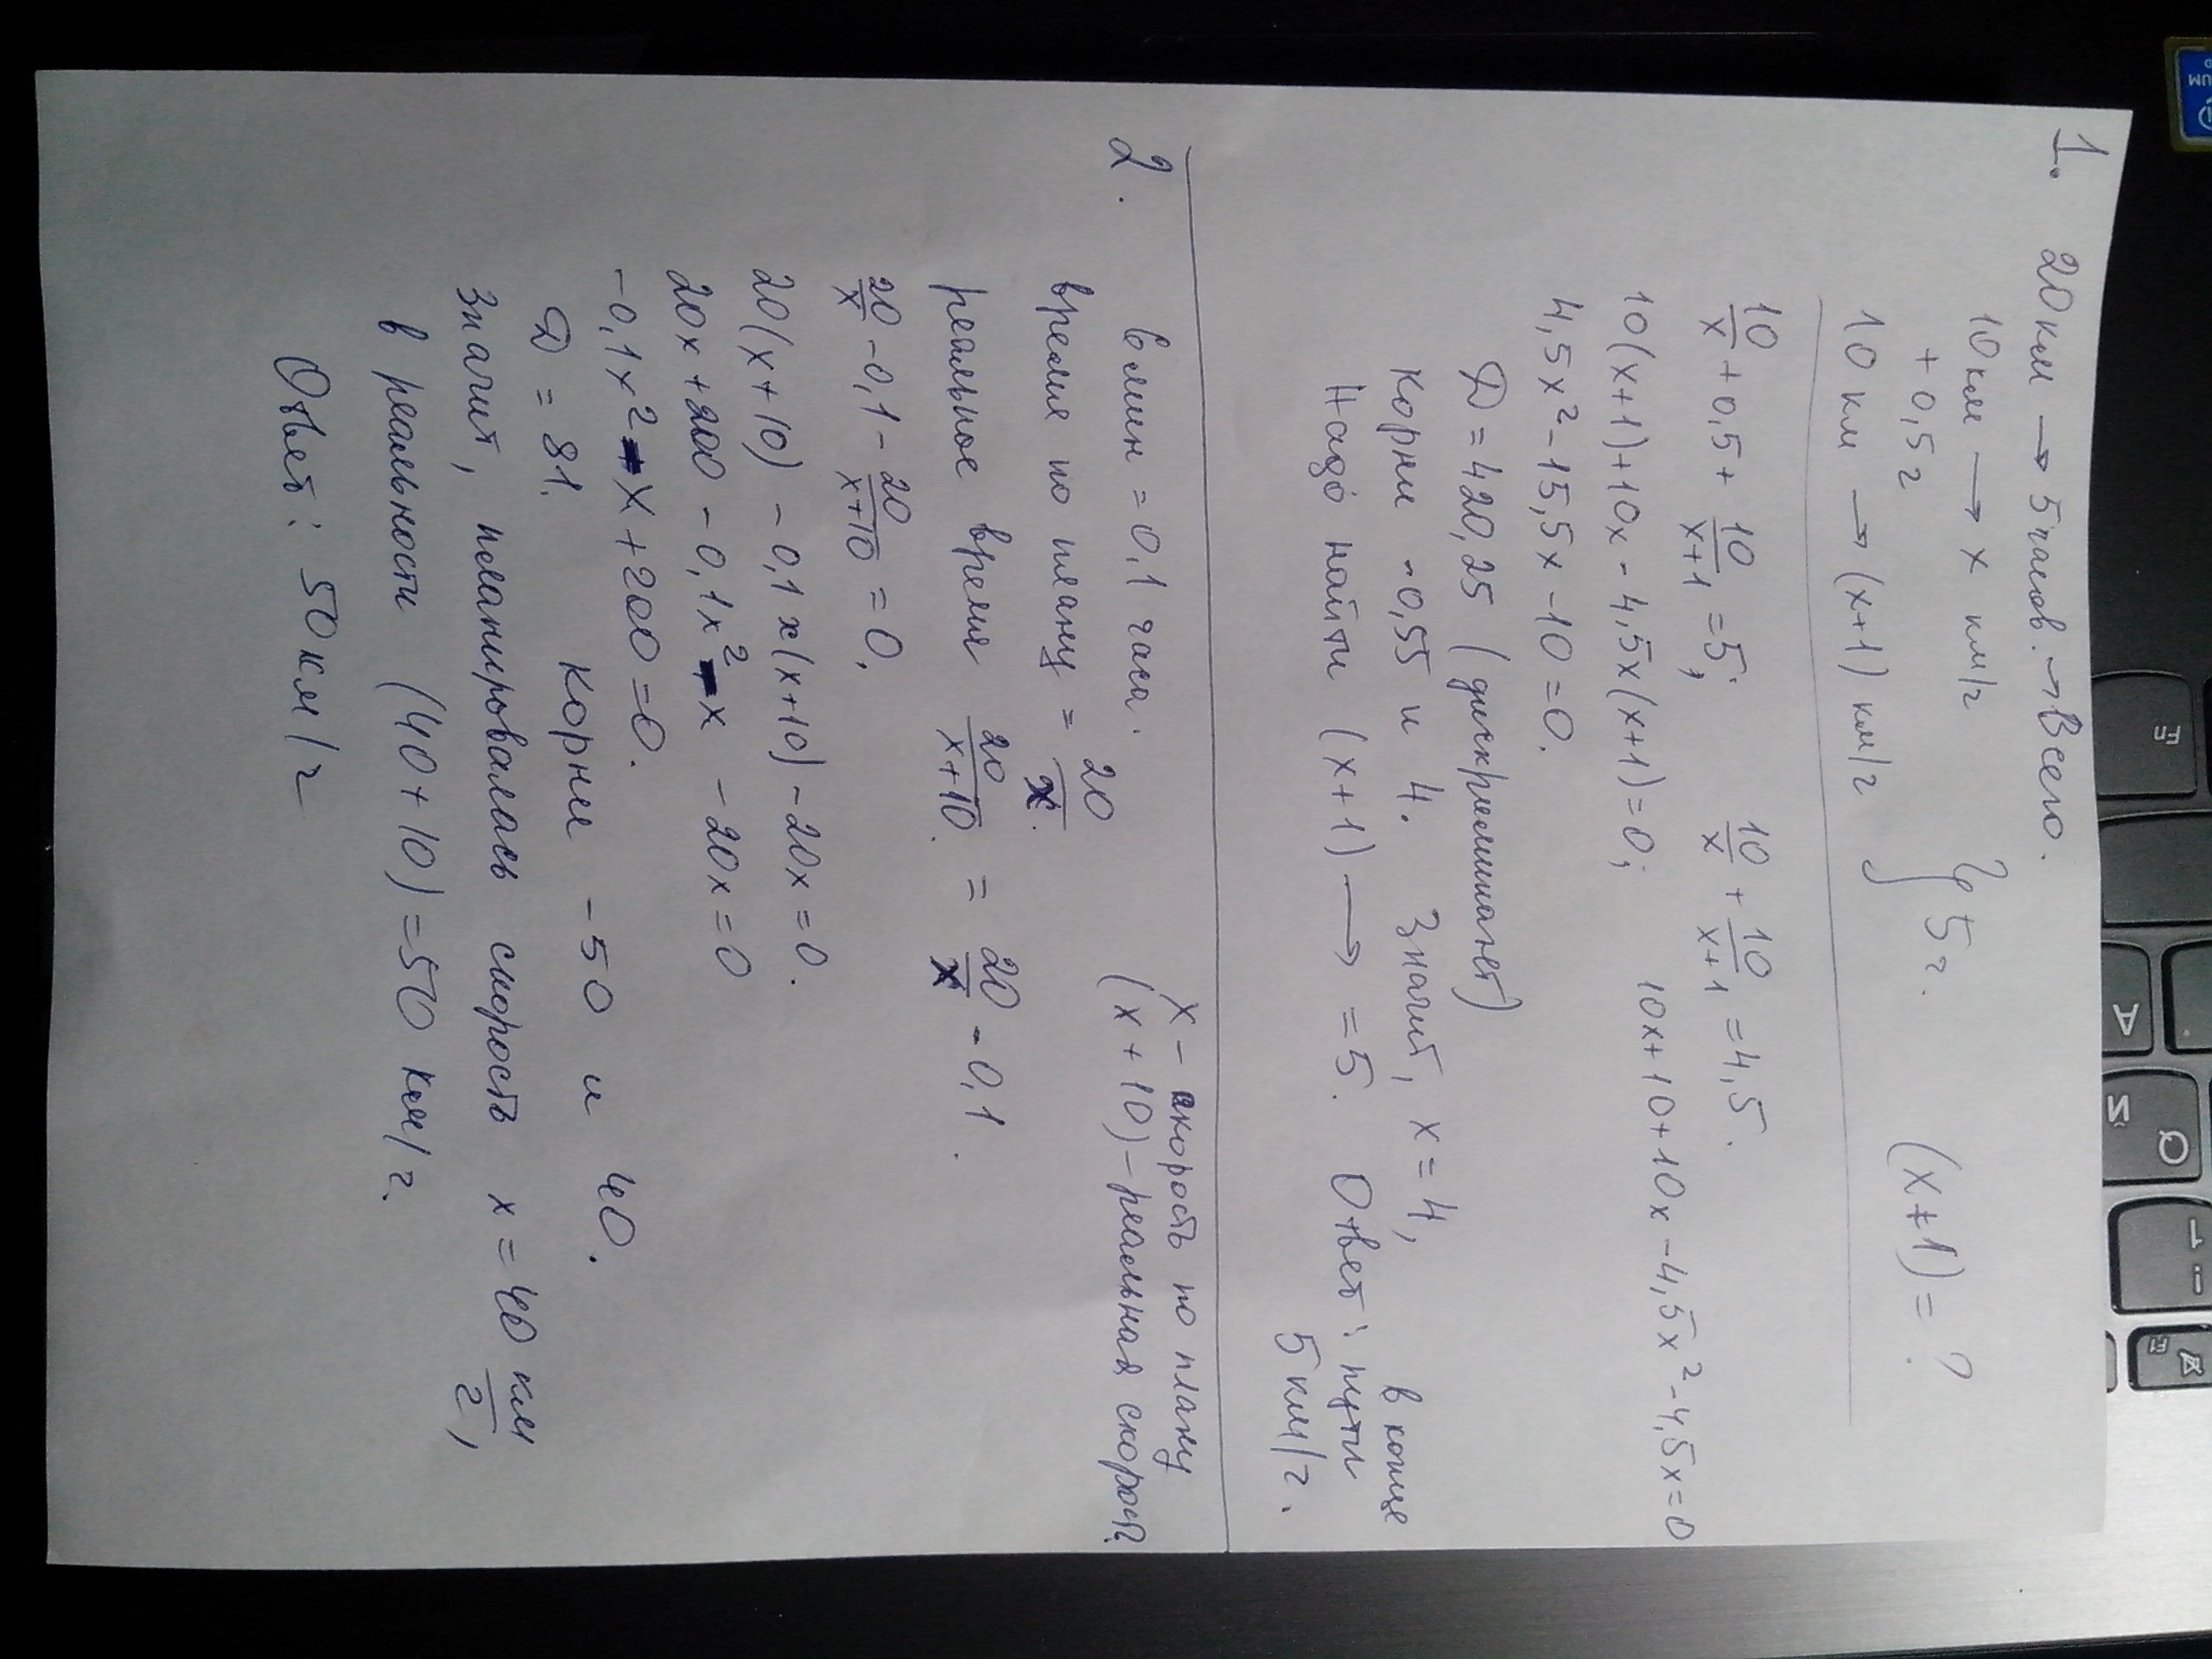 1. 20 км → 5 часов. → Всего.
10 км → x км/г
+ 0,5 г
10 км → (x+1) км/г
} 5 г.
(x+1) = ?
10/x + 0,5 + 10/x+1 = 5; 10/x + 10/x+1 = 4,5.
10(x+1)+10x - 4,5x(x+1)=0; 10x+10+10x-4,5x²-4,5x=0
4,5x²-15,5x-10=0.
D = 420,25 (дискриминант)
Корни -0,55 и 4. Значит, x=4,
Надо найти (x+1) → = 5. Ответ: в конце пути 5 км/г.
2. 6 мин = 0,1 часа. x - скорость по плану
(x+10) - реальная скорость.
время по плану = 20/x.
реальное время 20/x+10. = 20/x - 0,1.
20/x - 0,1 - 20/x+10 = 0,
20(x+10) - 0,1x(x+10) - 20x = 0.
20x+200 - 0,1x² - x - 20x = 0
-0,1x² - x + 200 = 0.
D = 81. Корни -50 и 40.
Значит, планировалась скорость x = 40 км/г,
в реальности (40+10) = 50 км/г.
Ответ: 50 км/г
Fn
A
Z
Q
1
!
F1